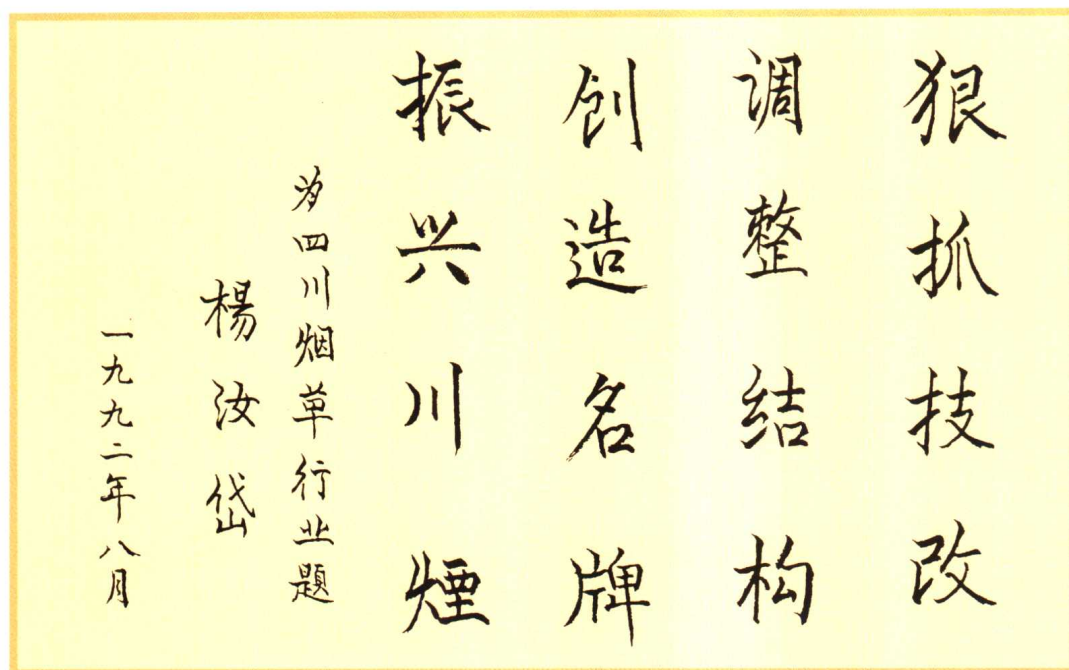 狠抓技改
调整结构
创造名牌
振兴川煙
为四川烟草行业题
楊汝岱
一九九二年八月